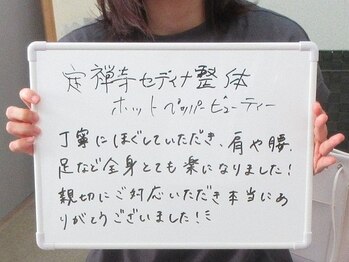 定禅寺セディナ整体
ホットペッパービューティー
丁寧にほぐしていただき、肩や腰、
足など全身とても楽になりました!
親切にご対応いただき本当にあ
りがとうございました!